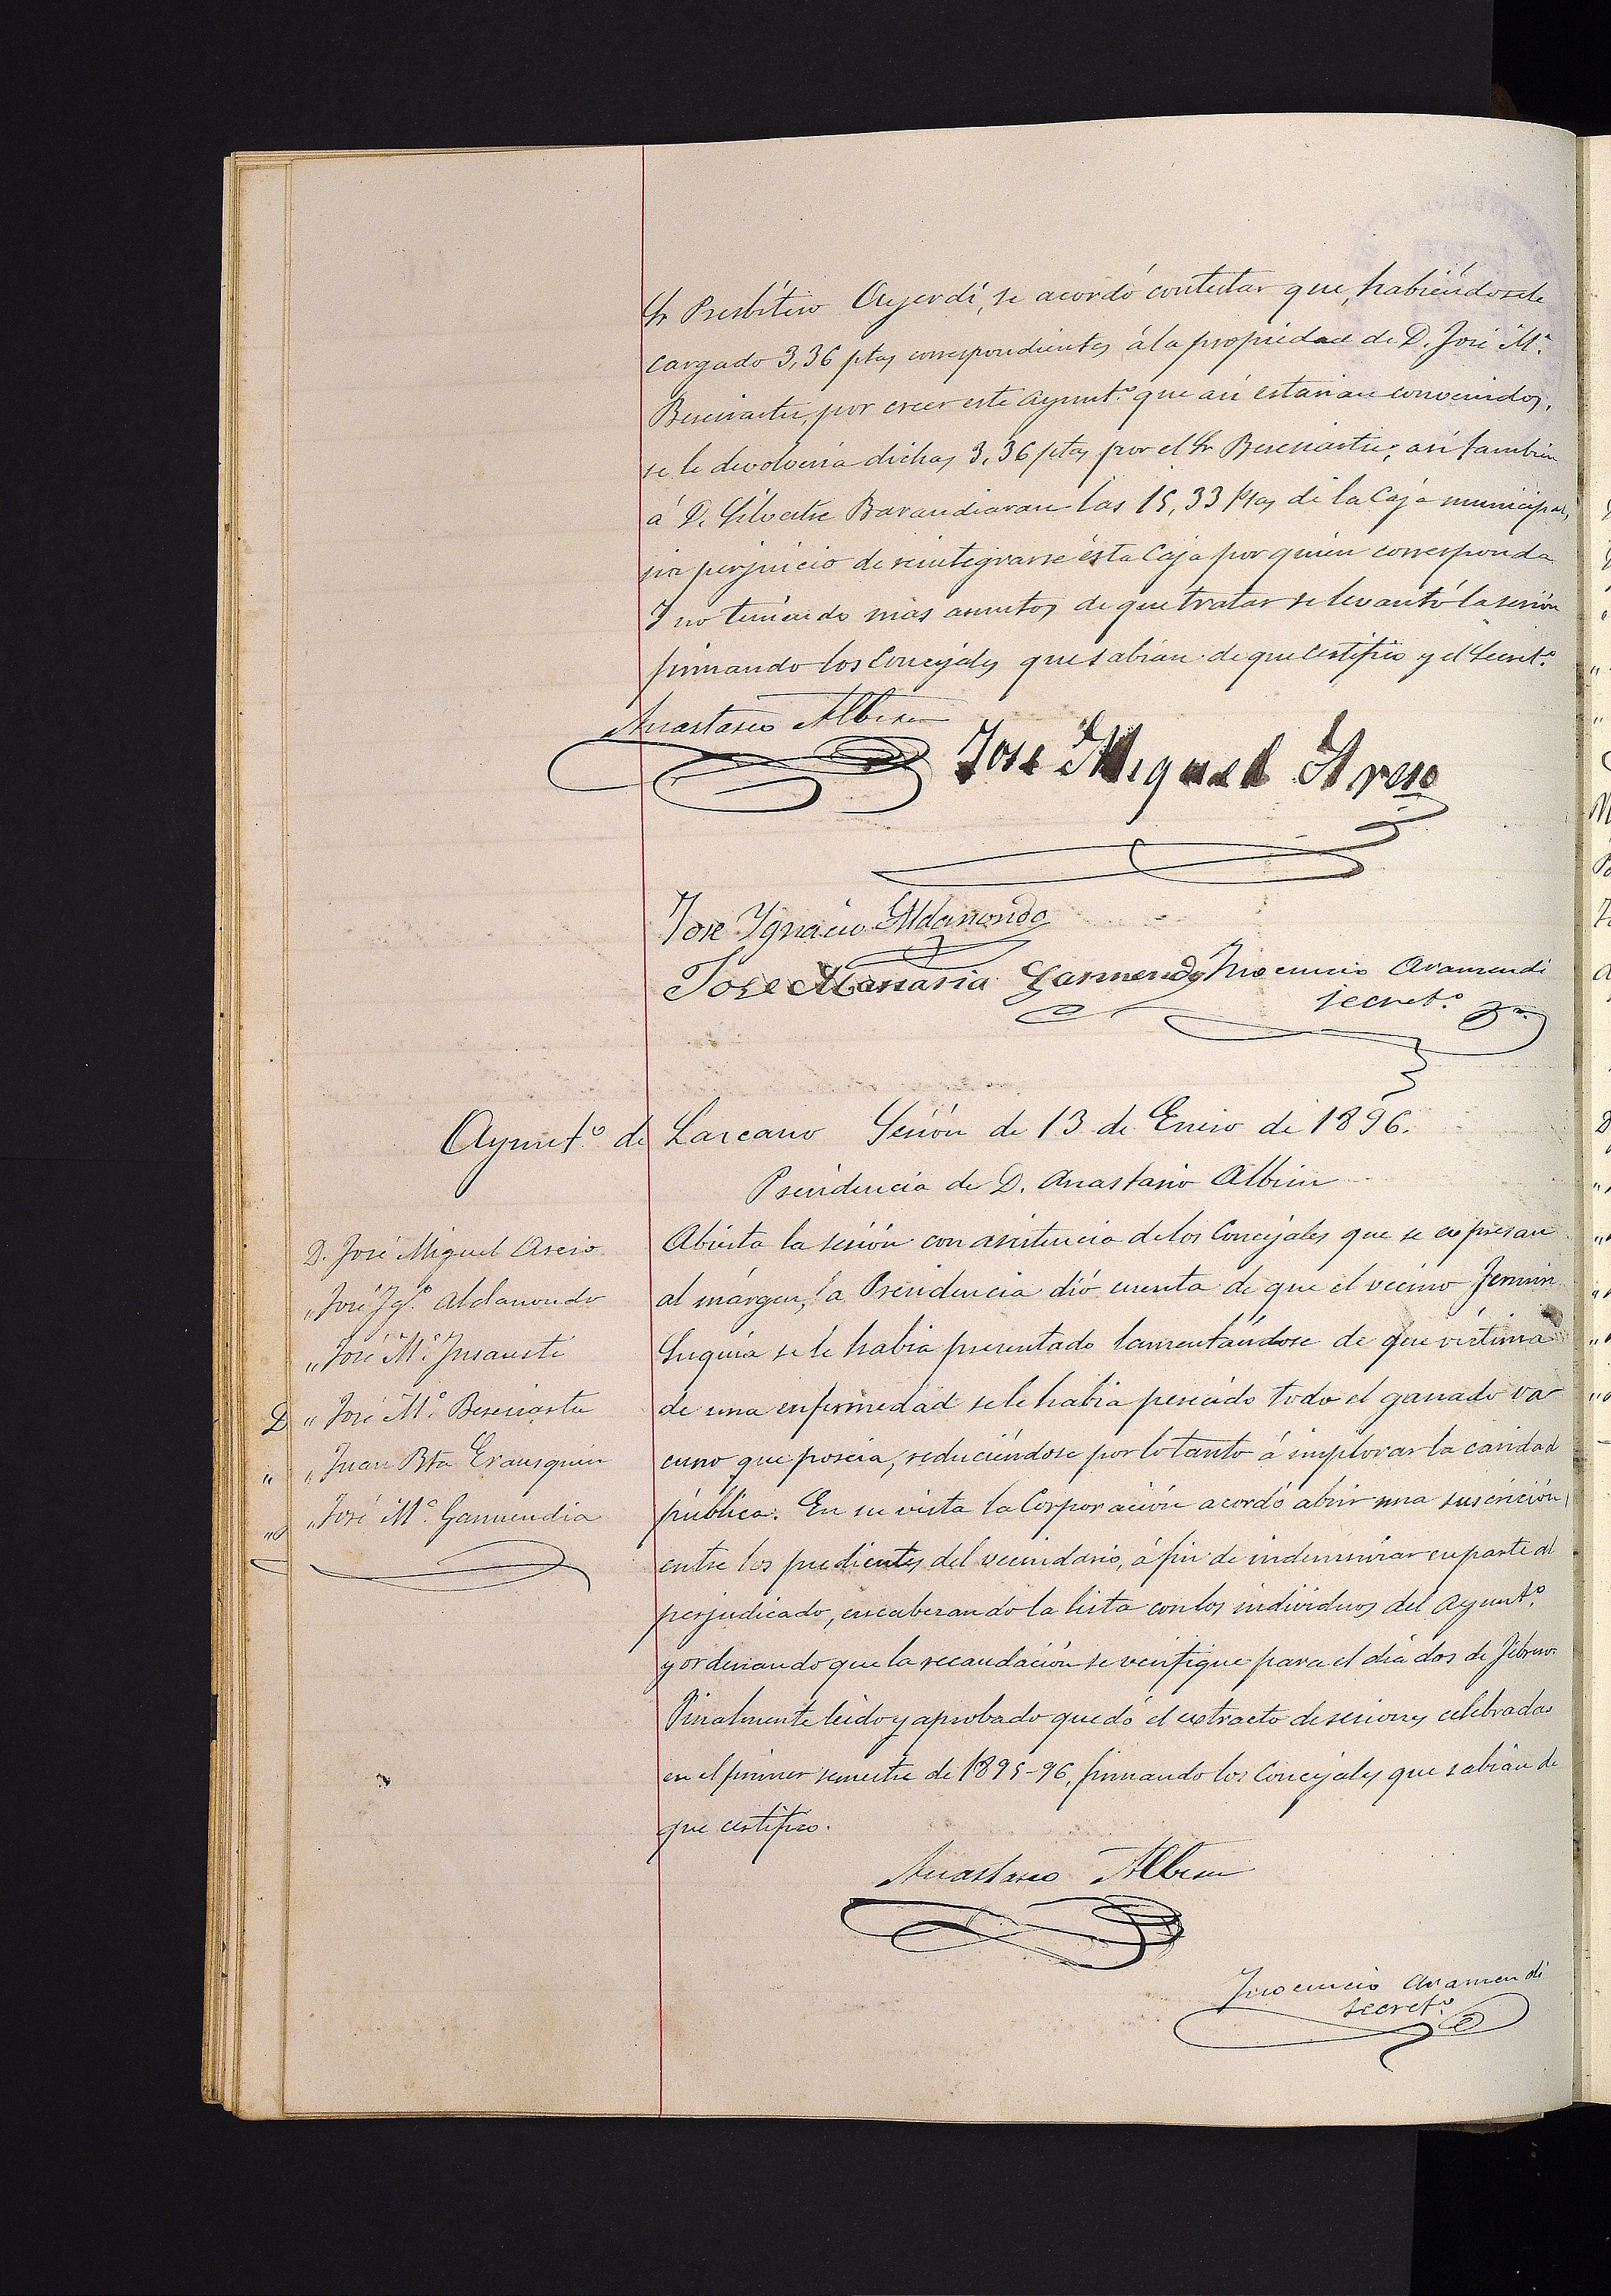 Sr Presbítero Oyerdi, se acordó contestar que, habiéndosele
cargado 3,36 ptas correspondientes á la propiedad de D. José Mª
Bereciartu, por creer este Ayuntº que así estarian convenidos,
se le devolveria dichas 3,36 ptas por el Sr Bereciartu; así tambien
á D. Silvestre Barandiaran las 15,33 ptas de la Caja municipal,
sin perjuicio de reintegrarse ésta Caja por quien corresponda
Y no teniendo mas asuntos de que tratar se levantó la sesión
firmando los Concejales que sabian de que certifico y el Secretº
Anastasio Albisu
Jose Miguel Areso
Jose Ygnacio Aldanondo
Jose Maria Garmendia Inocencio Aramendi
secretº
Ayuntº de Lazcano Sesión de 13 de Enero de 1896.
Presidencia de D. Anastasio Albisu
D. José Miguel Areso
„ José Igº Aldanondo
„ José Mª Insausti
D „ José Mª Bereciartu
„ „ Juan Bta Erausquin
„ „ José Mª Garmendia
Abierta la sesión con asistencia de los Concejales que se expresan
al márgen, la Presidencia dió cuenta de que el vecino Fermin
Suquia se le habia presentado lamentándose de que víctima
de una enfermedad se le habia perecido todo el ganado va
cuno que poseia, reduciéndose por lo tanto á implorar la caridad
pública. En su vista la Corporación acordó abrir una suscrición,
entre los pudientes del vecindario, á fin de indemnizar en parte al
perjudicado, encabezando la lista con los individuos del Ayuntº
y ordenando que la recaudación se verifique para el dia dos de Febrero.
Finalmente leido y aprobado quedó el extracto de sesiones celebradas
en el primer semestre de 1895-96, firmando los Concejales que sabian de
que certifico.
Anastasio Albisu
Inocencio Aramendi
secretº